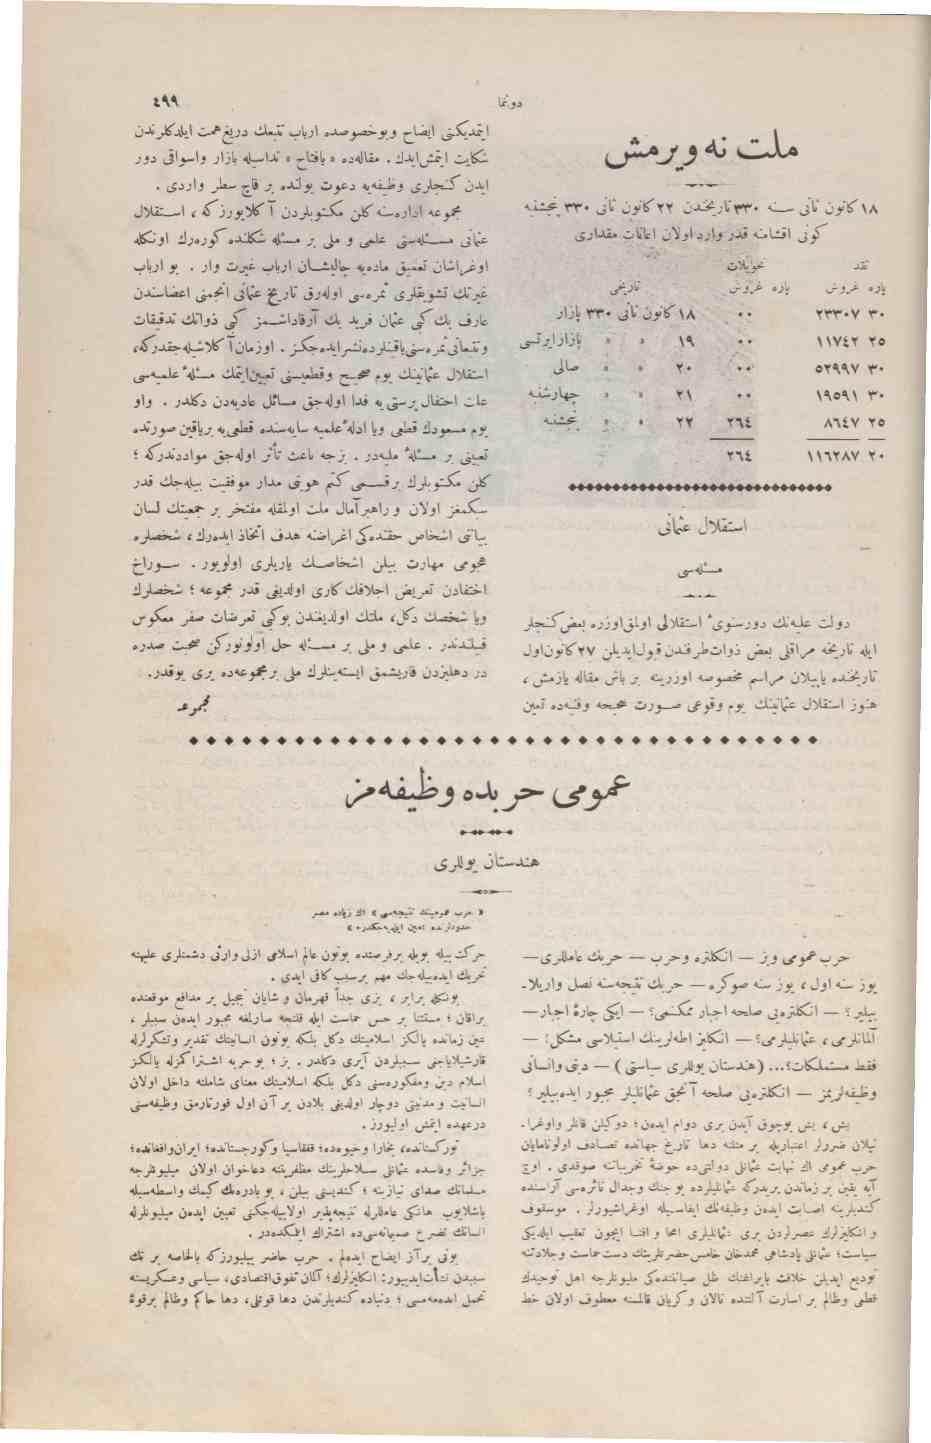 دوننما
٤٩٩
ملت نه ویرمش
١٨ كانون ثانی سنه ٣٣٠ تاریخندن ٢٢ كانون ثانی ٣٣٠ پنجشنبه
كونی اقشامنه قدر وارد اولان اعانات مقداری
نقد تحویلات
پاره غروش پاره غروش تاریخی
٣٠ ٢٣٣٠٧ ٠٠ ١٨ كانون ثانی ٣٣٠ پازار
٢٥ ١١٧٤٢ ٠٠ ١٩ » » پازارایرتسی
٣٠ ٥٢٩٩٧ ٠٠ ٢٠ » » صالی
٣٠ ١٩٥٩١ ٠٠ ٢١ » » چهارشنبه
٢٥ ٨٦٤٧ ٢٦٤ ٢٢ » » پنجشنبه
٢٠ ١١٦٢٨٧ ٢٦٤
استقلال عثمانی
مسئله‌سی
دولت علیه‌نك دورسنویء استقلالی اولمق اوزره بعض كنجلر
ایله تاریخه مراقلی بعض ذوات طرفندن قبول ایدیلن ٢٧ كانون اول
تاریخنده یاپیلان مراسم مخصوصه اوزرینه بر باش مقاله یازمش ،
هنوز استقلال عثمانینك یوم وقوعی صورت صحیحه وفنیه‌ده تعین
ایتمدیكنی ایضاح وبوخصوصده ارباب تتبعك دریغ همت ایلدكلرندن
شكایت ایتمش ایدك . مقاله‌ده « یافتاح » نداسیله بازار واسواقی دور
ایدن كنجلری وظیفه‌یه دعوت یولنده بر قاچ سطر واردی .
مجموعه اداره‌سنه كلن مكتوبلردن آكلایورزكه ، استقلال
عثمانی مسئله‌سنی علمی و ملی بر مسئله شكلنده كوره‌رك اونكله
اوغراشان تعمیق ماده‌یه چالیشان ارباب غیرت وار . بو ارباب
غیرتك تشویقلری ثمره‌سی اوله‌رق تاریخ عثمانی انجمنی اعضاسندن
عارف بك كبی عثمان فرید بك آرقاداشمز كبی ذواتك تدقیقات
وتتبعاتی ثمره‌سنی یاقینلرده نشر ایده‌جكز . اوزمان آكلاشیله‌جقدركه،
استقلال عثمانینك یوم صحیح وقطعیسنی تعیین ایتمك مسئلهٔ علمیه‌سی
علت احتفال پرستی یه فدا اوله‌جق مسائل عادیه‌دن دكلدر . واو
یوم مسعودك قطعی ویا ادلهٔ علمیه سایه‌سنده قطعی‌یه یاقین صورتده
تعیینی بر مسئلهٔ ملیه‌در . بزجه باعث تأثر اوله‌جق مواددندركه ؛
كلن مكتوبلرك برقسمی كتم هویتی مدار موفقیت بیله‌جك قدر
سكمغز اولان و راهبر آمال ملت اولمقله مفتخر بر جمعیتك لسان
بیاننی اشخاص حقنده‌كی اغراضنه هدف اتخاذ ایده‌رك ، شخصلره
هجومی مهارت بیلن اشخاصك یازیلری اولویور . سوراخ
اختفادن تعریض اجلافك كاری اولدیغی قدر مجموعه ؛ شخصلرك
ویا شخصك دكل، ملتك اولدیغندن بوكبی تعرضات صفر معكوس
قبیلندندر . علمی و ملی بر مسئله حل اولونوركن صحبت صدره
در دهلیزدن قاریشمق ایسته‌ینلرك ملی بر مجموعه‌ده یری یوقدر .
مجموعه
عمومی حربده وظیفه‌مز
هندستان یوللری
« حرب عمومینك نتیجه‌سی » اك زیاده مصر
حدودلرنده تعیین ایلیه‌جكدر. »
حرب عمومی وبز — انكلتره وحرب — حربك عامللری—
یوز سنه اول ، یوز سنه صوكره — حربك نتیجه‌سنه نصل واریلا-
بیلیر ؟ — انكلتره‌یی صلحه اجبار ممكنمی؟ — ایكی چارهٔ اجبار—
آلمانلرمی ، عثمانلیلرمی؟ — انكلیز اطه‌لرینك استیلاسی مشكل: —
فقط مستملكات؟... (هندستان یوللری سیاستی) — دینی وانسانی
وظیفه‌لریمز — انكلتره‌یی صلحه آنجق عثمانلیلر مجبور ایده‌بیلیر ؟
بش ، بش بوچوق آیدن بری دوام ایده‌ن ؛ دوكیلن قانلر واوغرا-
نیلان ضررلر اعتباریله بر مثلنه دها تاریخ جهانده تصادف اولونامایان
حرب عمومی اك نهایت عثمانلی دولتنی‌ده حوضهٔ تخریباتنه صوقدی . اوچ
آیه یقین بر زماندن بریدركه عثمانلیلرده بو جنك وجدال نائره‌سی آراسنده
كندیلرینه اصابت ایده‌ن وظیفه‌نك ایفاسیله اوغراشیورلر . موسقوف
و انكلیزلرك عصرلردن بری عثمانلیلری امحا و افنا ایچون تعقیب ایلدیكی
سیاست؛ عثمانلی پادشاهی محمدخان خامس حضرتلرینك دست حماست وجلادتنه
تودیع ایدیلن خلافت بایراغنك ظل صیانتنده‌كی ملیونلرجه اهل توحیدك
قطعی وظالم بر اسارت آلتنده نالان وگریان قالمسنه معطوف اولان خط
حركت بیله بویله برفرصتده بوتون عالم اسلامی ازلی وارثی دشمنلری علیهنه
تحریك ایده‌بیله‌جك مهم برسبب كافی ایدی .
بونكله برابر ، بزی جداً قهرمان و شایان تبجیل بر مدافع موقعنده
براقان ؛ مستثنا بر حس حماست ایله قلنجه صارلمغه مجبور ایده‌ن سببلر ،
عین زمانده یالكز اسلامیتك دكل بلكه بوتون انسانیتك تقدیر وتشكرلرله
قارشیلایاجنی سببلردن آیری دكلدر . بز ؛ بو حربه اشتراكمزله یالكز
اسلام دین ومفكوره‌سنی دكل بلكه اسلامیتك معنای شاملنه داخل اولان
انسانیت و مدنیتی دوچار اولدیغی بلادن بر آن اول قورتارمق وظیفه‌سنی
درعهده ایتمش اولیورز .
توركستانده، بخارا وخیوه‌ده؛ قفقاسیا وكورجستانده؛ ایران وافغانده؛
جزائر وفاسده عثمانلی سلاحلرینك مظفریتنه دعاخوان اولان میلیونلرجه
مسلمانك صدای نیازینه ؛ كندیسنی بیلن ، بو بادره‌نك كیمك واسطه‌سیله
باشلایوب هانكی عامللرله نتیجه‌پذیر اولابیله‌جكنی تعیین ایده‌ن میلیونلرله
انسانك تضرع صمیمانه‌سی‌ده اشتراك ایلمكده‌در .
بونی برآز ایضاح ایده‌لم . حرب حاضر بیلیورزكه بالخاصه بر تك
سببدن نشأت ایدییور: انكلیزلرك؛ آلمان تفوق اقتصادی، سیاسی وعسكریسنه
تحمل ایده‌مه‌مسی ؛ دنیاده كندیلرندن دها قوتلی، دها حاكم وظالم برقوهٔ